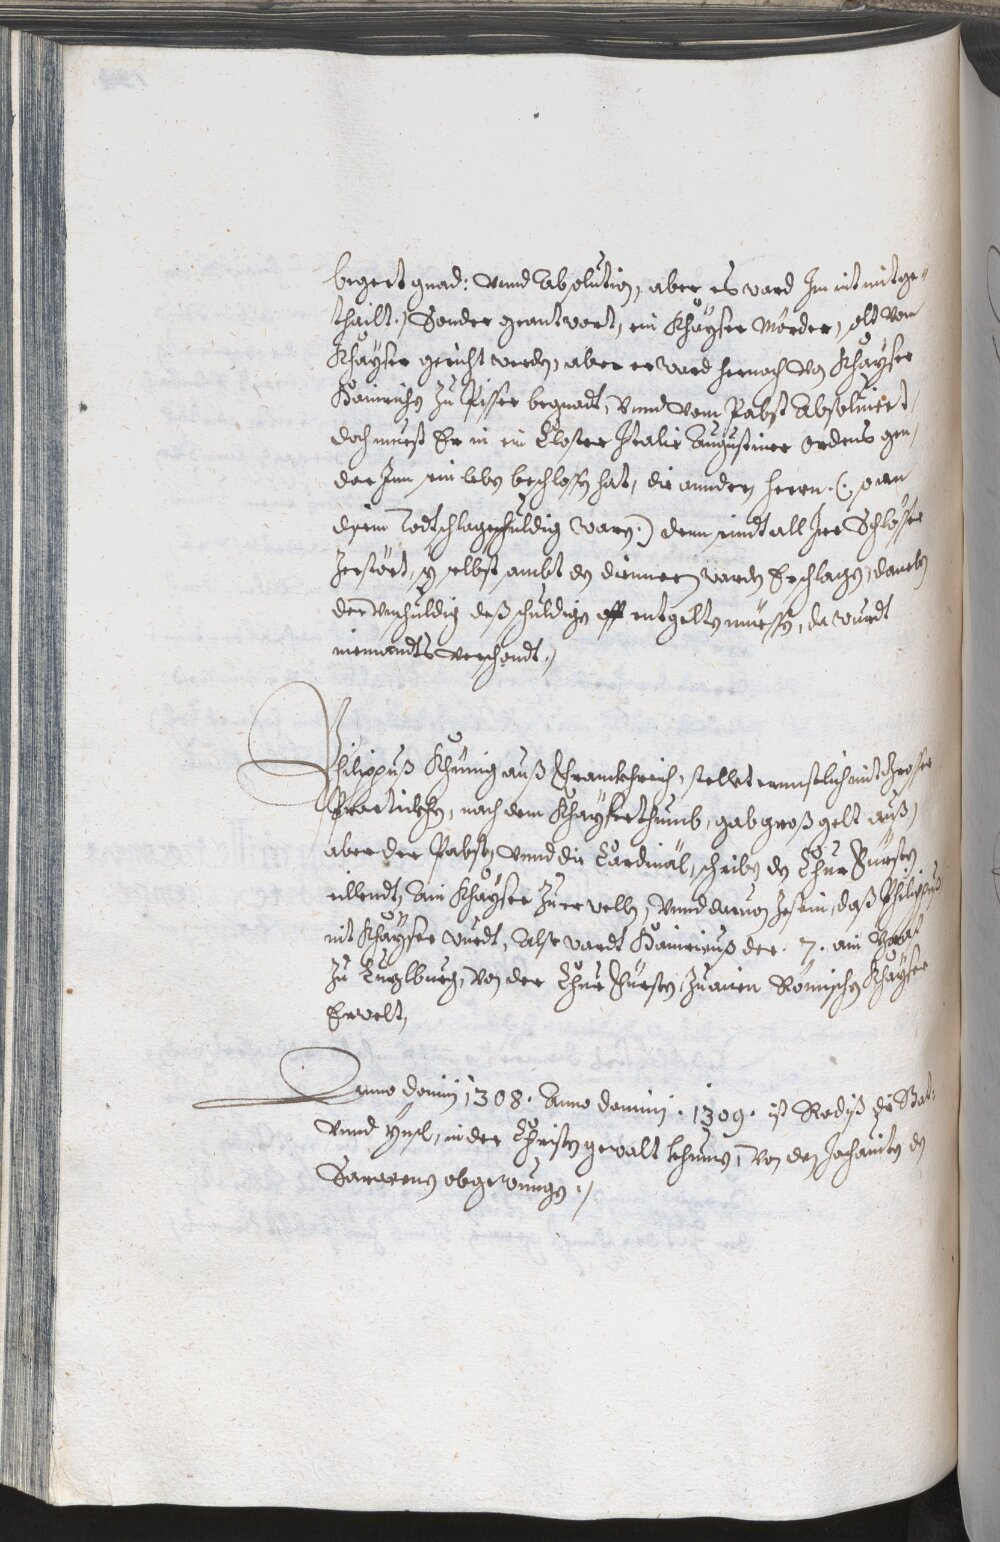 begert gnad: vnnd Absolution, aber es ward Im nit mitge-
thailt./ Sonder geantwort, ein Khaÿser Mörder, solt vom
Khaÿser gericht werden, aber er ward hernach von Khaÿser
Hainrichen zu Pisse begnadt, vnnd vom Pabst Absoluiert,
doch muest Er in ein Closter Italie Augustiner ordens gen,
dar Inn sein leben beschlossen hat, die anndern herrn .(: so an
disem Todtschlag schuldig waren :) denn sindt all Ire Schlösser
Zerstört, sÿ selbst sambt den diennern warden Erschlagen, daneben
der vnschuldig deß schuldigen offt entgelten müessen, da wurdt
niemandts verschondt./
Philippuß Khünig auß Franckhreich, stellet ernnstlich mit Grosser
Practickhen, nach dem Khaÿserthumb, gab groß gelt auß,
aber der Pabst vnnd die Cardinäl, schriben den Chur Fürsten
eillendt, Ain Khaÿser zu erwellen, vnnd daruon zesein, daß Philippus
nit Khaÿser wurdt, Also wardt Hainricuß der .7. ain Graf
zu Luzlburg, von der Chur Fürsten, zu ainen Römischen Khaÿser
Erwelt,
Anno domini 1308. Anno domini .1309. ist Rodiß die Stat,
vnnd Ynsl, in der Christen gewalt khumen, von den Johaniter den
Saracenen abgewungen ./